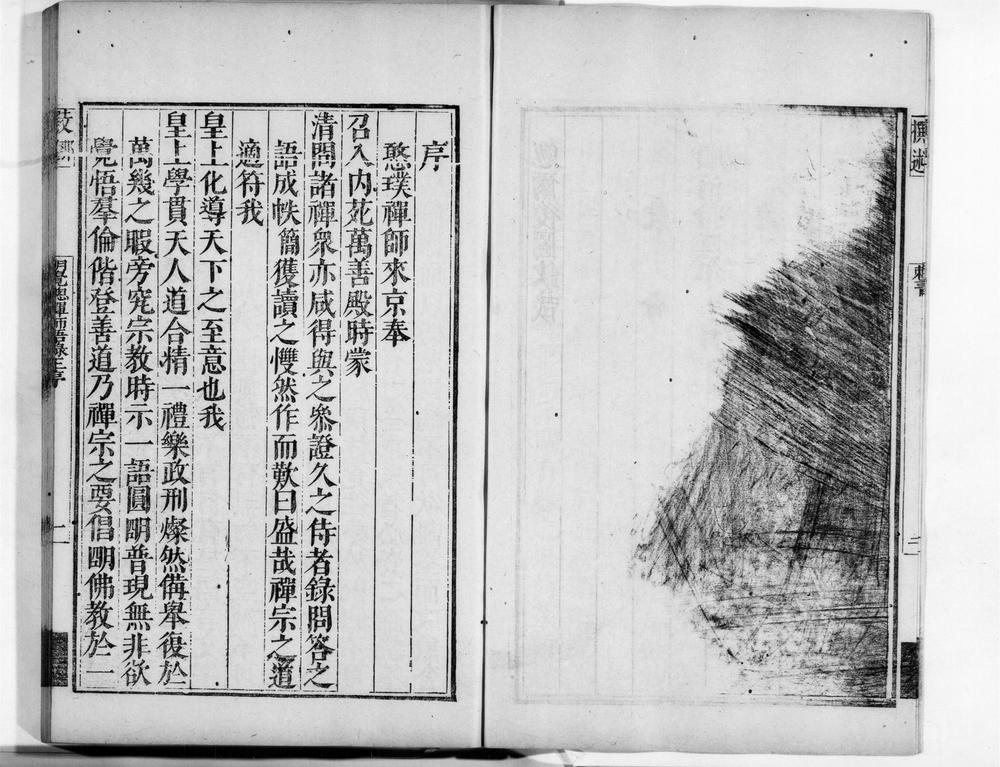 撰述
敕書
二
序
憨璞禪師來京奉
召入内苑萬善殿時蒙
清問諸禪衆亦咸得與之叅證久之侍者錄問答之
語成帙簡獲讀之戄然作而歎曰盛哉禪宗之道
適符我
皇上化導天下之至意也我
皇上學貫天人道合精一禮樂政刑燦然備舉復於
萬幾之暇旁究宗教時示一語圓明普現無非欲
覺悟羣倫階登善道乃禪宗之要倡明佛教於一
一